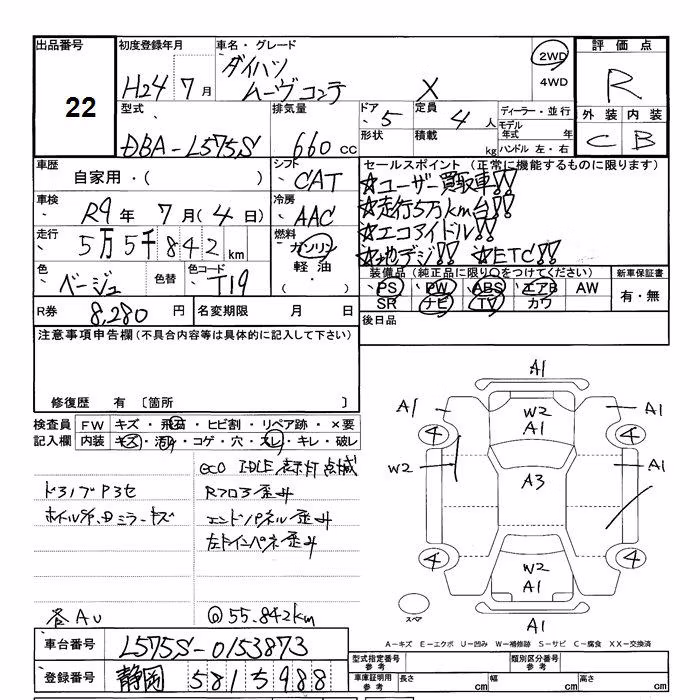 出品番号 初度登録年月 車名・グレード 評価点
22
H24 7月 ダイハツ ムーヴコンテ X 2WD 4WD R
型式 排気量 ドア 5 定員 4人 ディーラー・並行 外装 内装
DBA-L575S 660 cc 形状 積載 kg モデル年式 年 ハンドル 左・右 C B
車歴 自家用・( ) シフト CAT セールスポイント(正常に機能するものに限ります)
☆ユーザー買取車!!
車検 R9年 7月(4日) 冷房 AAC ☆走行5万km台!!
走行 5万5千842km 燃料 ガソリン 軽油・ ☆エコアイドル!!
☆地デジ!! ☆ETC!!
色 ベージュ 色替 色コード T19 装備品(純正品に限り○をつけてください) 新車保証書
PS PW ABS エアB AW 有・無
SR ナビ TV カワ
R券 8,280円 名変期限 月 日 後日品
注意事項申告欄(不具合内容等は具体的に記入して下さい)
修復歴 有 〔箇所
検査員 FW キズ・飛石・ヒビ割・リペア跡・×要
記入欄 内装 キズ・汚れ・コゲ・穴・スレ・キレ・破レ
ECO IDLE表示灯点滅
ドろノブP3セ Rフロア歪み
ホイルSF、Dミラーキズ エンドパネル歪み
左ドインパネ歪み
各AU @55.842km
A1
A1 W2 A1 A1
4 4
W2 A3 A1
4 W2 4
A1
スペア A1
A-キズ E-エクボ U-凹み W-補修跡 S-サビ C-腐食 XX-交換済
車台番号 L575S-0153873 型式指定番号 参考 類別区分番号 参考
登録番号 静岡 581ち988 車庫証明用 参考 長さ cm 幅 cm 高さ cm